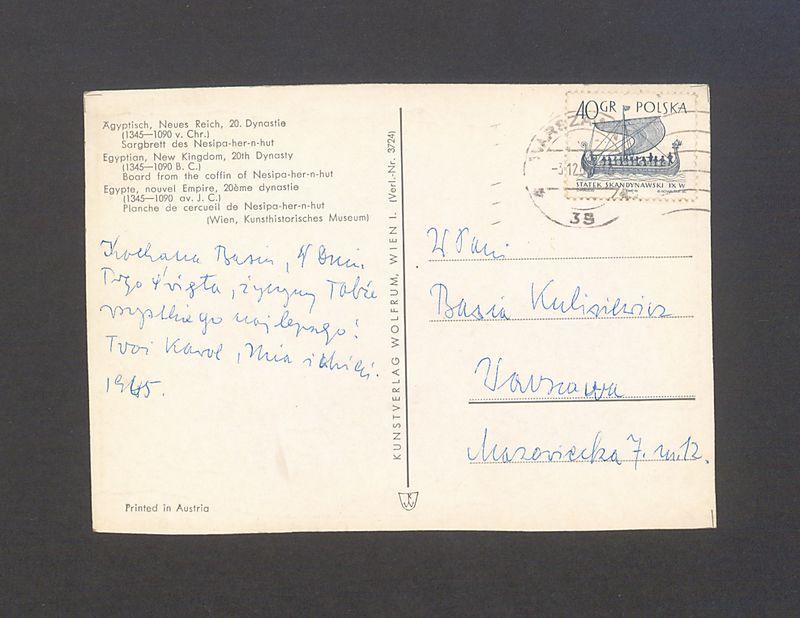 Ägyptisch, Neues Reich, 20. Dynastie
(1345—1090 v. Chr.)
Sargbrett des Nesipa-her-n-hut
Egyptian, New Kingdom, 20th Dynasty
(1345—1090 B. C.)
Board from the coffin of Nesipa-her-n-hut
Egypte, nouvel Empire, 20ème dynastie
(1345—1090 av. J. C.)
Planche de cercueil de Nesipa-her-n-hut
(Wien, Kunsthistorisches Museum)
Kochana Basiu, W Dniu
Twego Święta, życzymy Tobie
wszystkiego najlepszego!
Twoi Karol, Mia i
Printed in Austria
KUNSTVERLAG WOLFRUM, WIEN I. (Verl.-Nr. 3724)
40 GR POLSKA
STATEK SKANDYNAWSKI IX W
WARSZA
38
W Pani
Basia Kulisiewicz
Warszawa
Mazowiecka 7. m. 12.